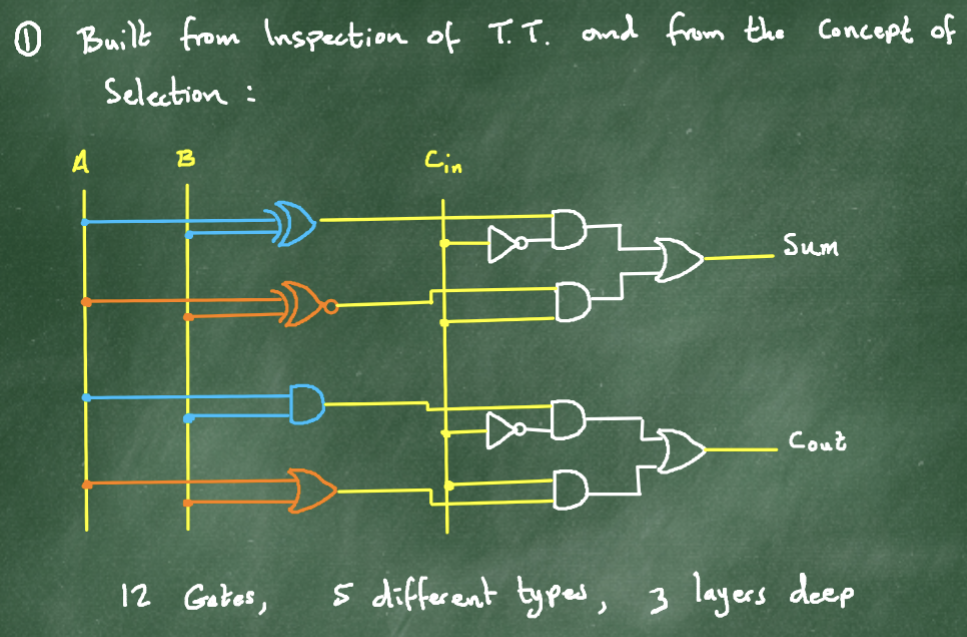 ① Built from Inspection of T.T. and from the Concept of
Selection :
A B Cin
Sum
Cout
12 Gates, 5 different types, 3 layers deep